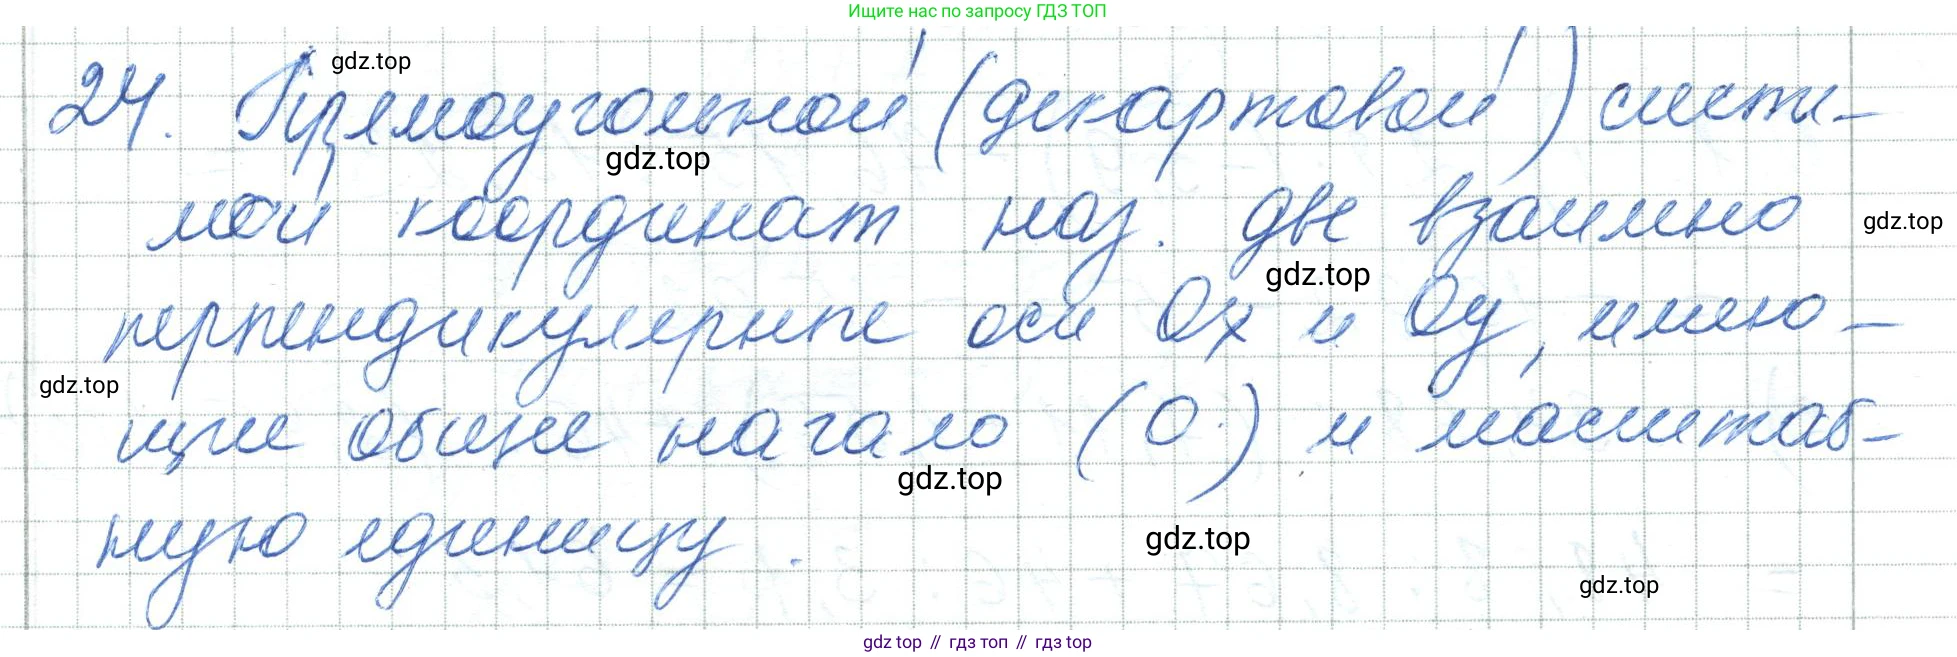 Ищите нас по запросу ГДЗ ТОП
gdz.top
24. Прямоугольной (декартовой) систе-
gdz.top
мой координат наз. две взаимно
gdz.top
gdz.top
перпендикулярные оси Ox и Oy, имею-
gdz.top
щие общее начало (О.) и масштаб-
gdz.top
ную единицу.
gdz.top
gdz.top
gdz.top // гдз топ // гдз top